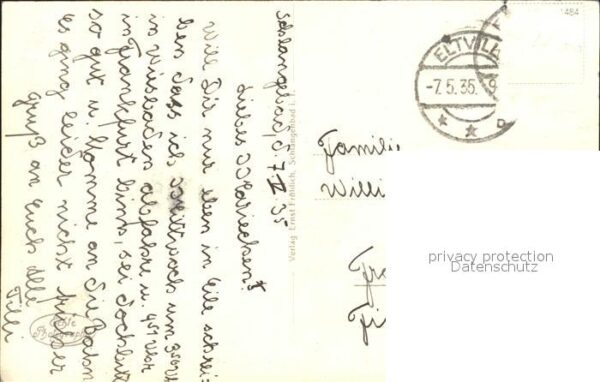 Schlangenbad d. 7 V. 35
Liebes Mariechen!
Will Dir nur eben in Eile schrei-
ben dass ich Mittwoch um 350 Uhr
in Wiesbaden abfahre u. 451 Uhr
in Frankfurt bin, sei doch bitte
so gut u. komme an die Bahn
es ging leider nicht früher
Gruß an Euch alle
Tilli
Echte
Photographie
Verlag Ernst Fröhlich, Schlangenbad i. T.
1484
ELTVILLE
-7.5.35. 9
Familie
Willi
privacy protection
Datenschutz